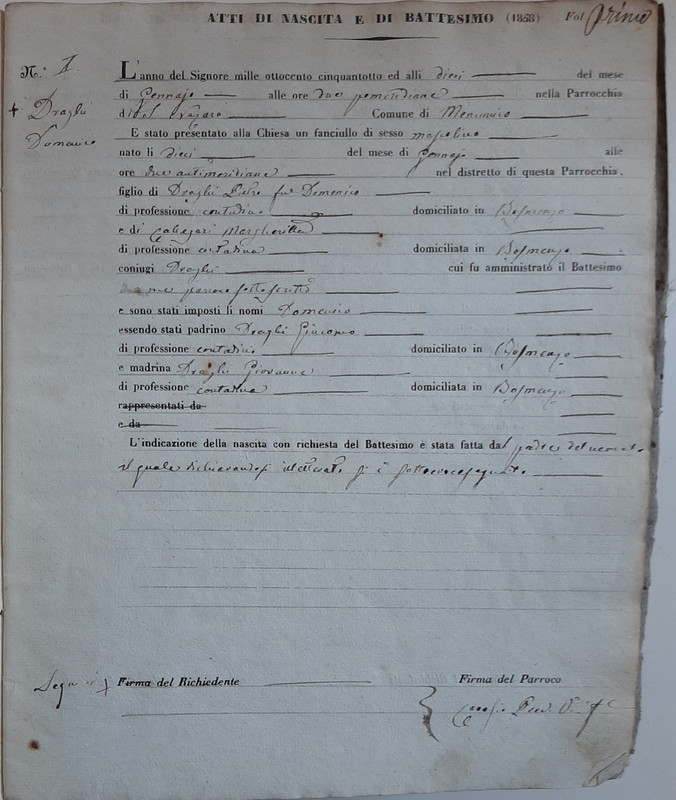 ATTI DI NASCITA E DI BATTESIMO (1858) Fol primo
N.° 1
L'anno del Signore mille ottocento cinquantotto ed alli dieci del mese
di Gennajo alle ore due pomeridiane nella Parrocchia
di Comune di Menconico
+ Draghi
Domenico
E stato presentato alla Chiesa un fanciullo di sesso mascolino
nato li dieci del mese di Gennajo alle
ore due antimeridiane nel distretto di questa Parrocchia.
figlio di Draghi Pietro fu Domenico
di professione contadino domiciliato in Bosmenzo
e di Callegari Margheritta
di professione contadina domiciliata in Bosmenzo
coniugi Draghi cui fu amministrato il Battesimo
da me parroco sottoscritto
e sono stati imposti li nomi Domenico
essendo stati padrino Draghi Giacomo
di professione contadino domiciliato in Bosmenzo
e madrina Draghi Giovanna
di professione contadina domiciliata in Bosmenzo
rappresentati da
e da
L'indicazione della nascita con richiesta del Battesimo è stata fatta dal padre del neonato
il quale dichiarandosi illetterato si è sottocrocesegnato
Segno + Firma del Richiedente Firma del Parroco